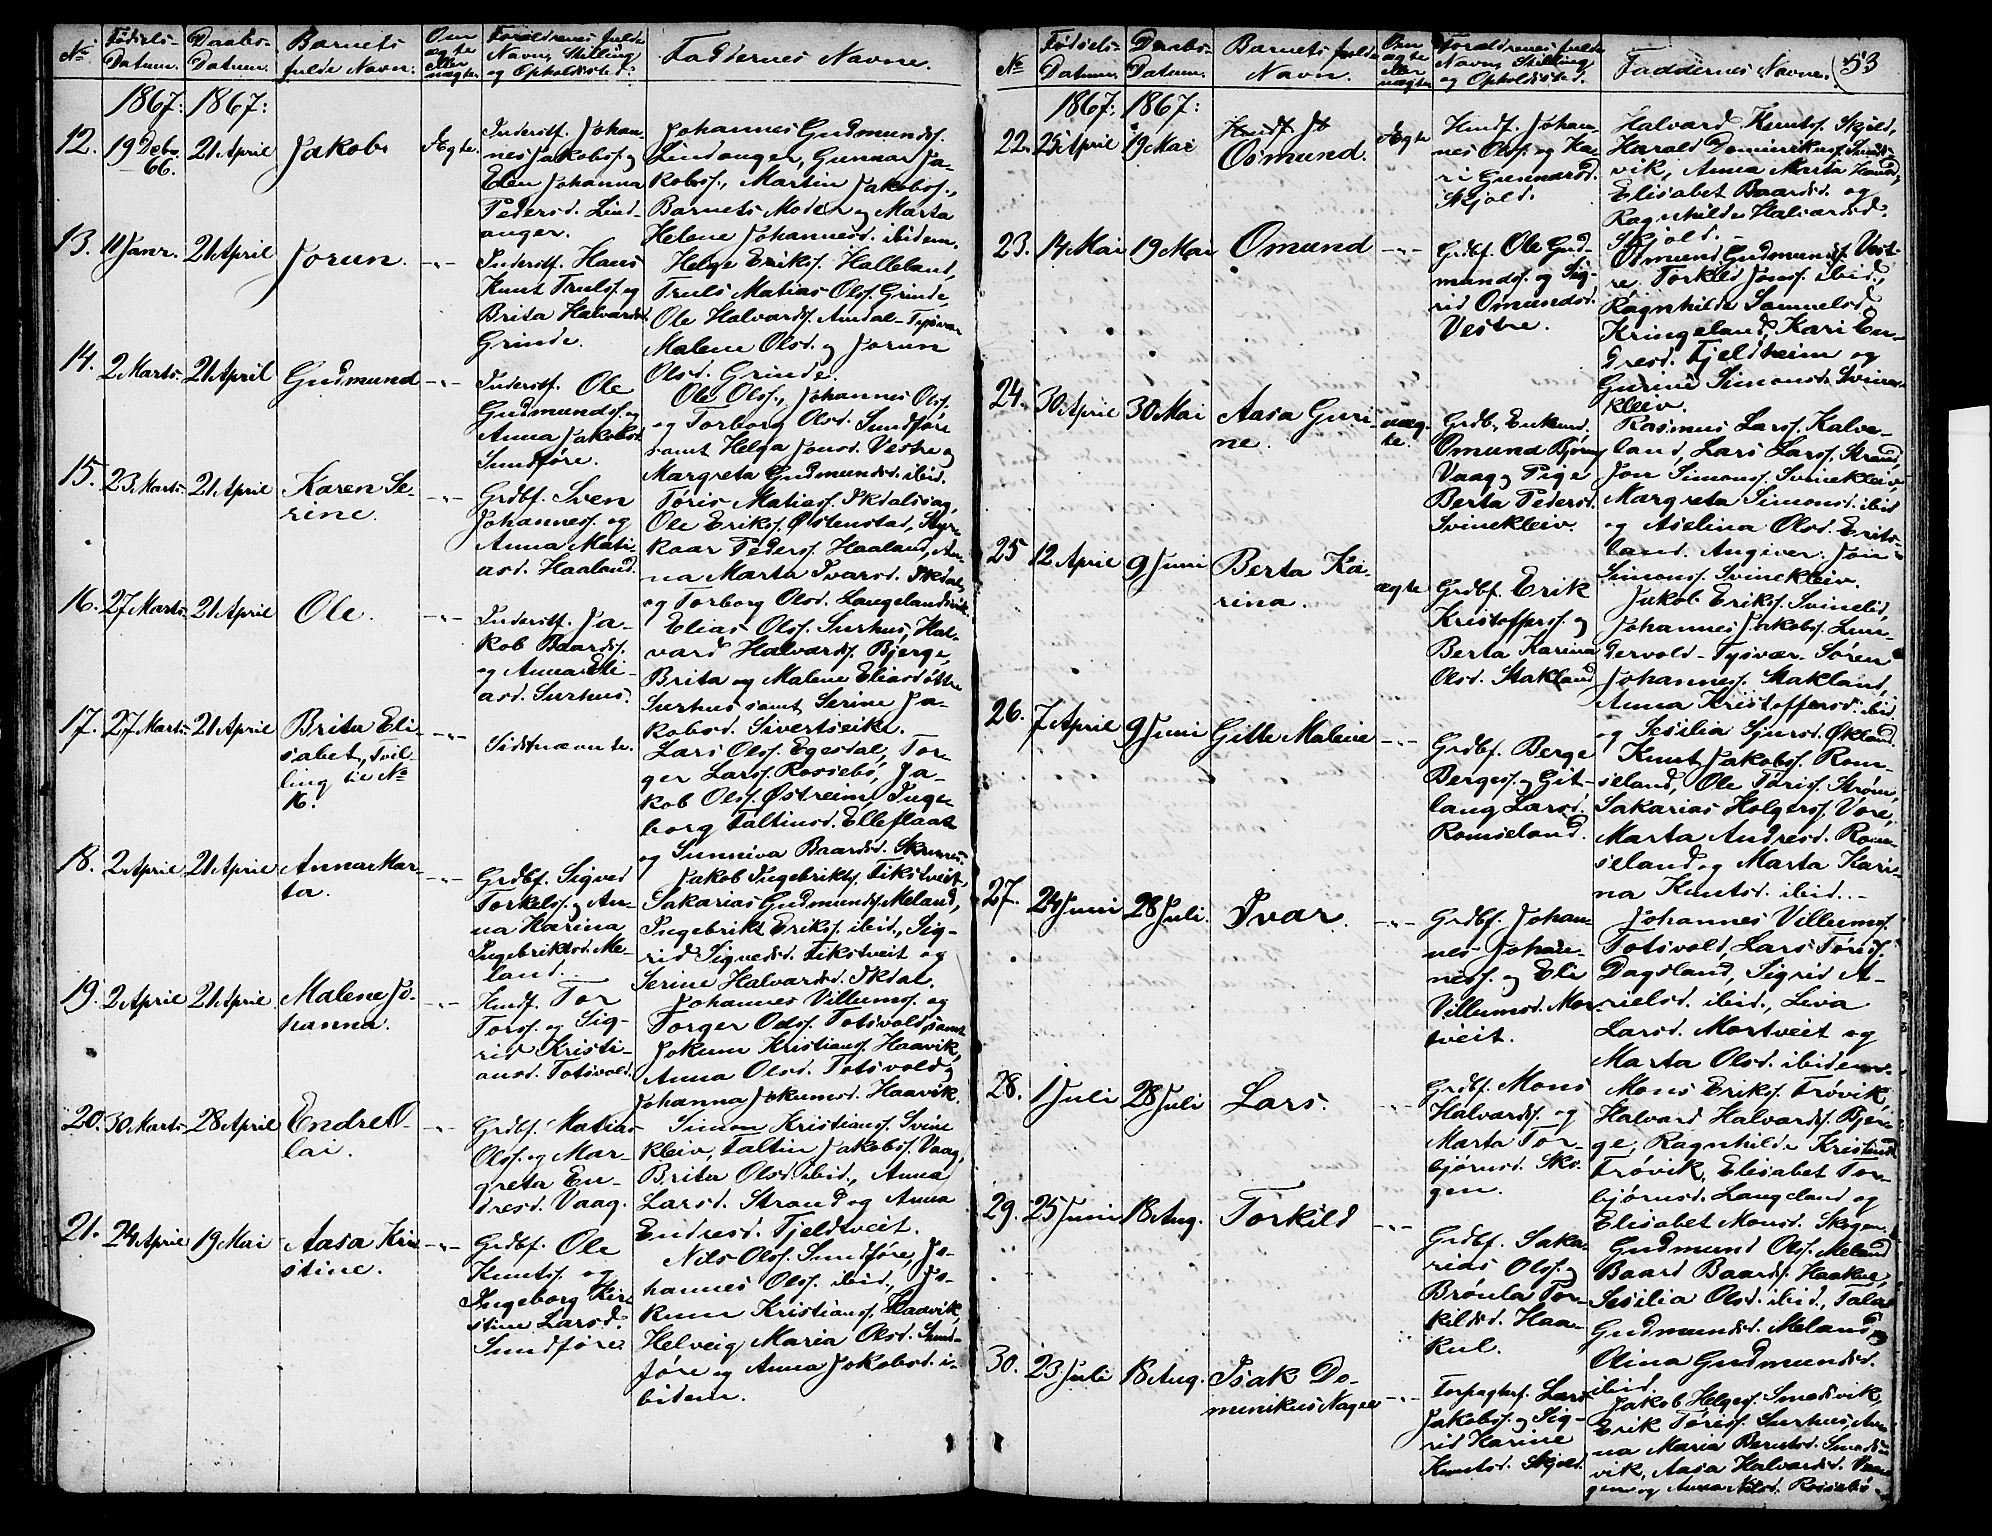 No
Fødsels-
Datum.
Daabs-
Datum.
Barnets
fulde Navn.
Om
ægte
eller
uægte
Forældrenes fulde
Navn, Stilling
og Opholdssted.
Faddernes Navne.
1867: 1867:
12.
19 Debr.
66.
21 April
Jakob.
Ægte.
Inderstf. Johan-
nes Jakobsf. og
Elen Johanna
Pedersd. Lind-
anger.
Johannes Gudmundsf.
Lindanger, Gunnar Ja-
kobsf., Martin Jakobsf.,
Barnets Moder og Marta
Helene Johannesd. ibidem.
13.
11 Janr.
21 April
Jorun.
Inderstf. Hans
Knut Trulsf. og
Brita Halvardsd.
Grinde.
Helge Eriksf. Halleland,
Truls Matias Olsf. Grinde,
Ole Halvardsf. Amdal-Tysvær
Malene Olsd. og Jorun
Olsd. Grinde.
14.
2 Marts.
21 April
Gudmund
Inderstf. Ole
Gudmundsf. og
Anna Jakobsd.
Sundføre.
Ole Olsf., Johannes Olsf.
og Torborg Olsd. Sundføre
samt Helga Jonsd. Vestre og
Margreta Gudmundsd. ibid.
15.
23 Marts.
21 April
Karen Se-
rine.
Grdbf. Sven
Johannesf. og
Anna Mati-
asd. Haaland.
Tøris Matiesf. Skdalsaag,
Ole Eriksf. Østenstad, Styr-
kaar Pedersf. Haaland, An-
na Marta Ivarsd. Skdal,
og Torborg Olsd. Langelandsvik.
16.
27 Marts
21 April
Ole.
Inderstf. Ja-
kob Baardsf.
og Anna Eli-
asd. Surhus.
Elias Olsf. Surhus, Hal-
vard Halvardsf. Bjerge,
Brita og Malene Eliasdøttre
Surhus samt Serine Ja-
kobsd. Sivertseike.
17.
27 Marts
21 April
Brita Eli-
sabet, Tvil-
ling til No
16.
Sidstnævnte.
Lars Olsf. Egesdal, Tor-
ger Larsf. Rossebø, Ja-
kob Olsf. Østreim, Inge-
borg Faltinsd. Elleflaat
og Sunniva Baardsd.
18.
2 April
21 April
Anna Mar-
ta.
Grdbf. Sigved
Torkelsf. og An-
na Karina
Ingebriktsd. Me-
land.
Jakob Ingebriktsf. Fikstveit,
Sakarias Gudmundsf. Meland,
Ingebrikt Eriksf. ibid., Sig-
rid Sigvedsd. Fikstveit og
Serine Halvardsd. Skdal.
19.
2 April
21 April
Malene Jo-
hanna.
Husmf. Tor
Torsf. og Sig-
rid Kristi-
ansd. Totsvold.
Johannes Villumsf. og
Torger Odsf. Totsvold, samt
Jokum Kristiansf. Haavik,
Anna Olsd. Totsvold og
Johanna Jokumsd. Haavik.
20.
30 Marts
28 April
Endre O-
lai.
Grdbf. Matias
Olsf. og Mar-
greta En-
dresd. Vaag.
Simon Kristiansf. Svine
kleiv, Faltin Jakobsf. Vaag,
Brita Olsd. ibid., Anna
Larsd. Strand og Anna
Endresd. Fjeldtveit.
21.
24 April
19 Mai
Aasa Kri-
stine.
Grdbf. Ole
Knutsf. og
Ingeborg Kir-
stine Larsd.
Sundføre
Nils Olsf. Sundføre, Jo-
hannes Olsf. ibid., Jo-
kum Kristiansf. Haavik,
Helveig Maria Olsd. Sund-
føre og Anna Jakobsd. i-
bidem.
No
Fødsels-
Datum.
Daabs-
Datum.
Barnets fulde
Navn.
Om
ægte
eller
uægte
Forældrenes fulde
Navn, Stilling
og Opholdssted.
Faddernes Navne.
53
1867: 1867:
22.
25 April
19 Mai
Osmund.
Ægte
Husf. Johan-
nes Olsf. og Ka-
ri Gunnarsd.
Skjold.
Halvard Knutsf. Skjold,
Harald Dominikusf. Smeds-
vik, Anna Marta Knutsd.,
Elisabet Baardsd. og
Ragnhilde Halvardsd.
Skjold.
23.
14 Mai
19 Mai
Omund
Grdbf. Ole Gud-
mundsf. og Sig-
rid Omundsd.
Vestre.
Osmund Gudmundsf. Vest-
re, Torkild Jonsf. ibid.,
Ragnhilde Samuelsd.
Kringeland, Kari En-
dresd. Fjeldheim og
Gurine Simonsd. Svine-
kleiv.
24.
30 April
30 Mai
Aasa Guri-
ne.
uæg-
te.
Grdb. Enkem.
Omund Bjørnsf.
Vaag og Pige
Berta Pedersd.
Svinekleiv.
Rasmus Larsf. Kalve-
land, Lars Larsf. Strand,
Jon Simonsf. Svinekleiv,
Margreta Simonsd. ibid
og Aselina Olsd. Erits-
land. Angiver: Jon
Simonsf. Svinekleiv.
25
12 April
9 Juni
Berta Ka-
rina.
ægte
Grdbf. Erik
Kristoffersf. og
Berta Karina
Olsd. Stakland
Jakob Eriksf. Svinelid,
Johannes Jakobsf. Lun-
dervold-Tysvær. Søren
Johannesf. Stakland,
Anna Kristoffersd. ibid
og Sesilia Sjursd. Økland.
26.
7 April
9 Juni
Gitle Malene
Grdbf. Berge
Bergesf. og Git-
laug Larsd.
Romseland.
Knut Jakobsf. Rom-
seland, Ole Tørisf. Strøm,
Sakarias Holgersf. Vore,
Marta Andresd. Rom-
seland og Marta Kari-
na Knutsd. ibid.
27.
24 Juni
28 Juli.
Ivar.
Grdbf. Johan-
nes Johan-
nesf. og Eli
Villumsd. Mor-
tveit.
Johannes Villumsf.
Totsvold, Lars Tørisf.
Dagsland, Sigrid A-
rielsd. ibid., Liva
Larsd. Mortveit og
Marta Olsd. ibidem.
28.
1 Juli
28 Juli
Lars.
Grdbf. Mons
Halvardsf. og
Marta Tor-
bjørnsd. Sko-
gen.
Mons Eriksf. Frøvik,
Halvard Halvardsf. Bjer-
ge, Ragnhilde Kristensd.
Frøvik, Elisabet Tor-
bjørnsd. Langeland og
Elisabet Monsd. Skogen.
29.
25 Juni
18 Aug.
Torkild
Grdbf. Saka-
rias Olsf. og
Brønla Tor-
kildsd. Haa-
kul.
Gudmund Olsf. Meland
Baard Baardsf. Haakul,
Sesilia Olsd. ibid., Talas
Gudmundsd. Meland og
Olina Gudmundsd.
ibid.
30.
23 Juli
18 Aug.
Isak Do-
minikus Nagel
Forpagterf. Lars
Jakobsf. og Sig-
rid Karine
Knutsd. Skjold.
Jakob Helgesf. Smedsvik,
Erik Tørisf. Surhus, An-
na Maria Berntsd. Smeds-
vik, Aasa Halvardsd. Vaa-
gen og Anna Nilsd. Rossebø.